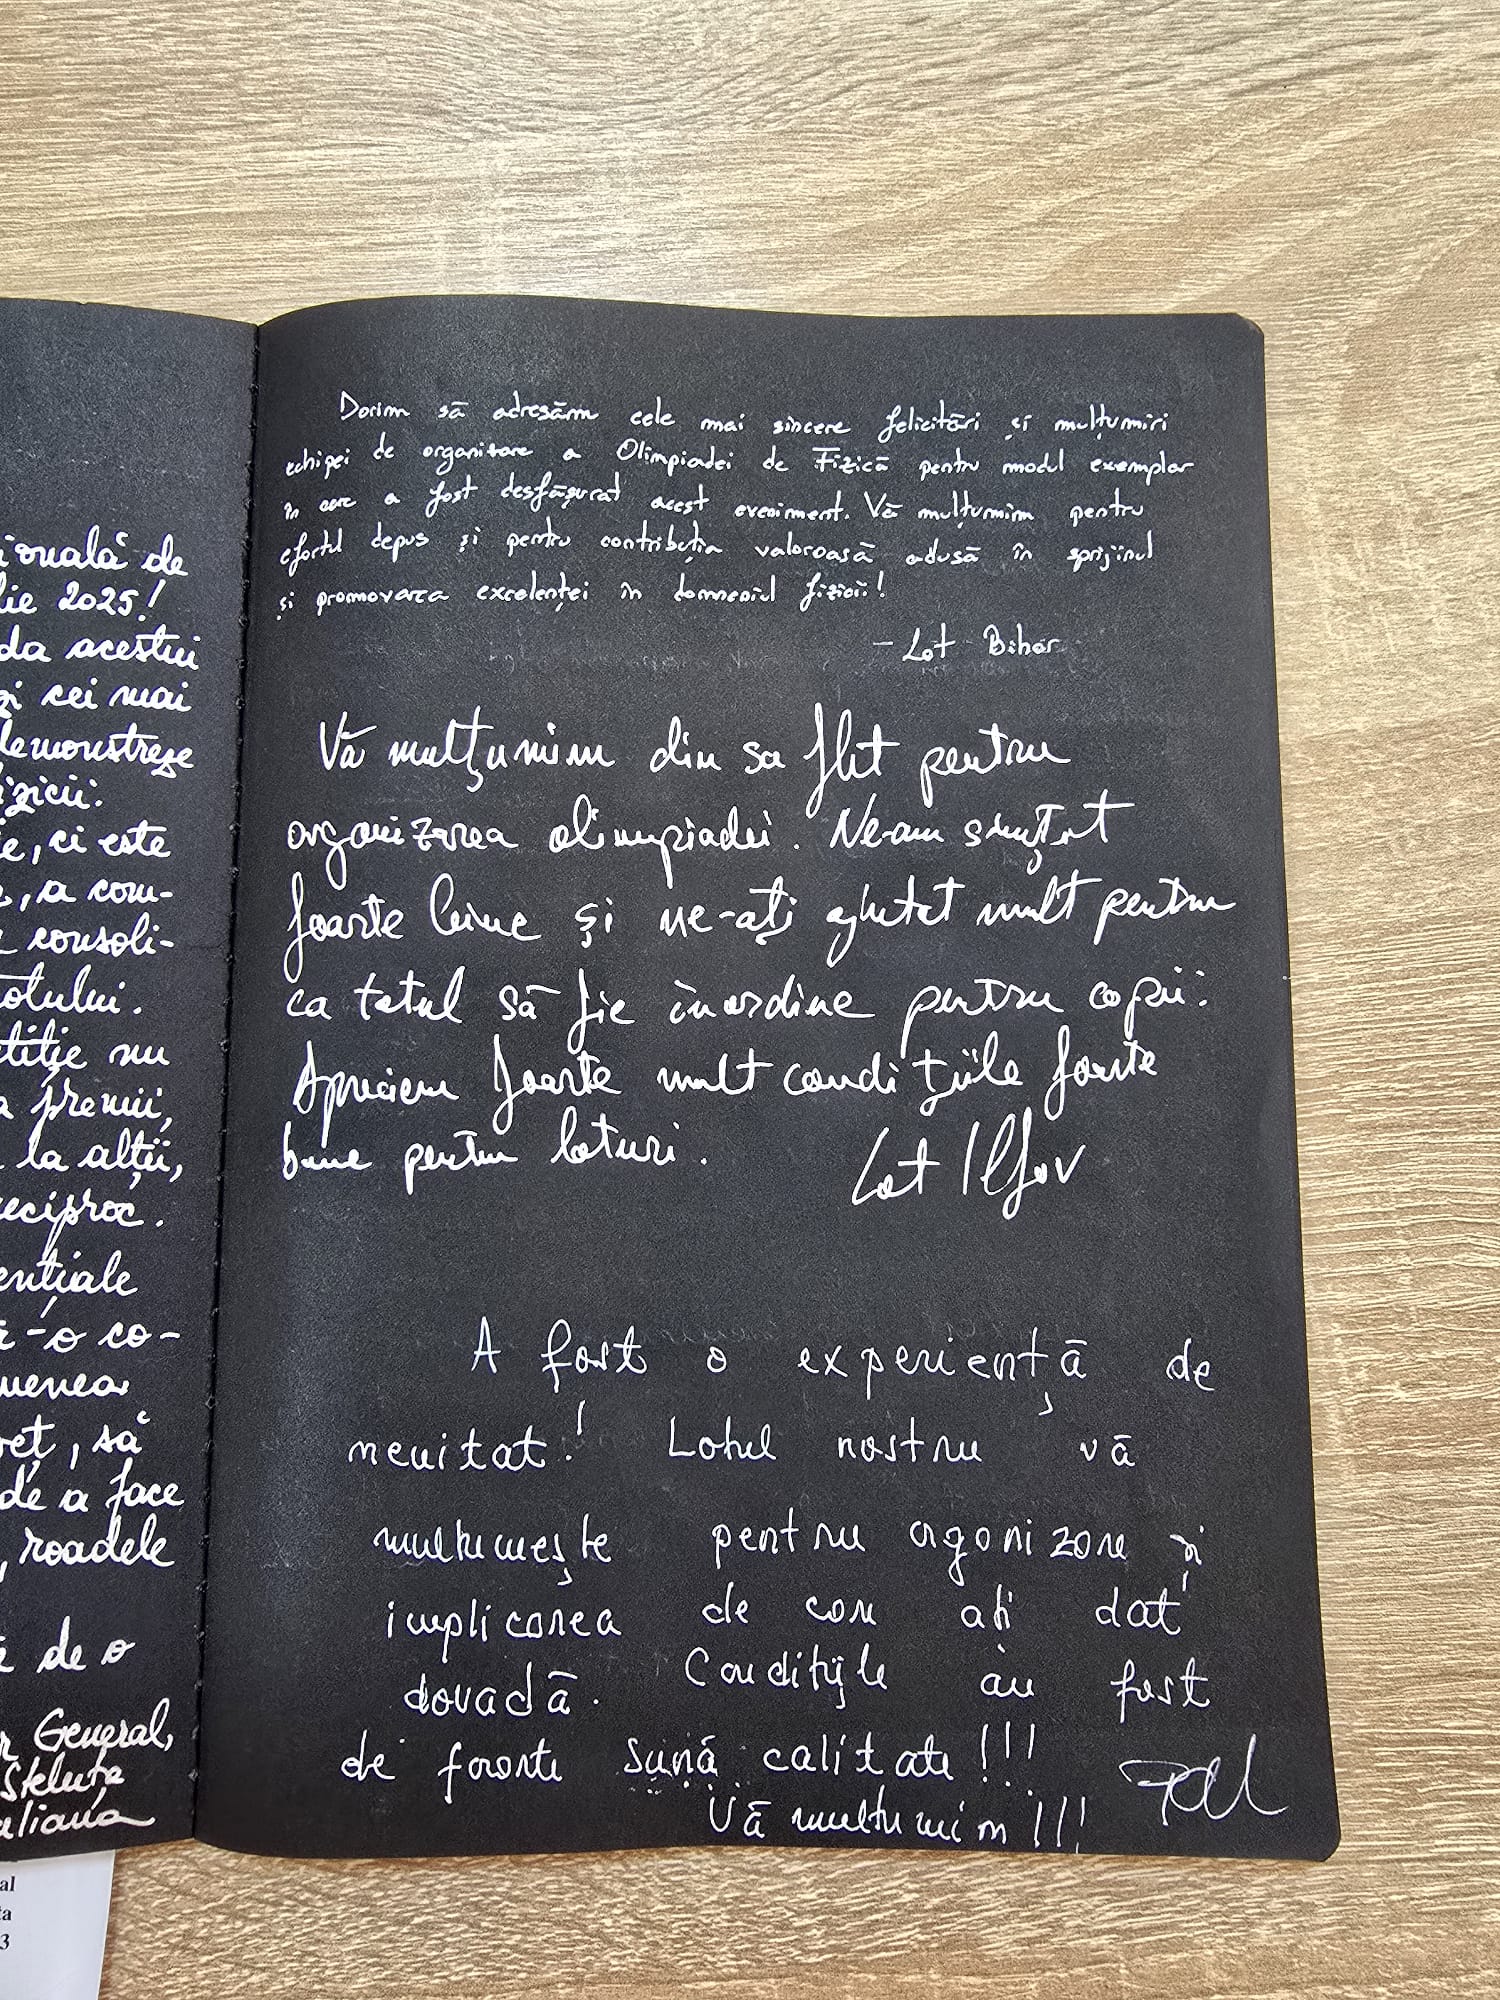 ională de
lie 2025!
da acestui
și cei mai
demonstreze
izicii.
e, ci este
, a com-
consoli-
otului.
etiție nu
a premii,
la alții,
reciproc.
ențiale
-o co-
menea
reț, să
de a face
, roadele
de o
r General,
Steluța
aliana
al
ta
3
Dorim să adresăm cele mai sincere felicitări și mulțumiri
echipei de organizare a Olimpiadei de Fizică pentru modul exemplar
în care a fost desfășurat acest eveniment. Vă mulțumim pentru
efortul depus și pentru contribuția valoroasă adusă în sprijinul
și promovarea excelenței în domeniul fizicii!
- Lot Bihor
Vă mulțumim din suflet pentru
organizarea olimpiadei. Ne-am simțit
foarte bine și ne-ați ajutat mult pentru
ca totul să fie în ordine pentru copii.
Apreciem foarte mult condițiile foarte
bune pentru loturi. Lot Ilfov
A fost o experiență de
neuitat! Lotul nostru vă
multumește pentru organizare și
implicarea de care ati dat
dovadă. Conditiile au fost
de foarte bună calitate!!!
Vă multumim!!!